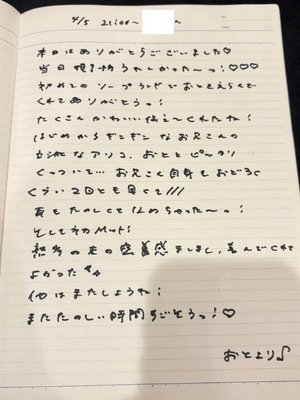 4/5 21:00~
本日はありがとうございました♡
当日現予約うれしかった〜っ!♡♡♡
初めてのソープランドでおとえらんで
くれてありがとうっ!
たくさんかわいい伝えてくれたね!
はじめからギンギンなお兄さんの
立派なアソコ、おととピッタリ
くっついて… お兄さん自身もおどろく
くらい2回とも早くて///
もたのしくて
そしてそのMut!
の末の密着感ましまし、喜んでくれて
よかった
またしようね!
またたのしい時間すごそうっ!♡
おとより♪